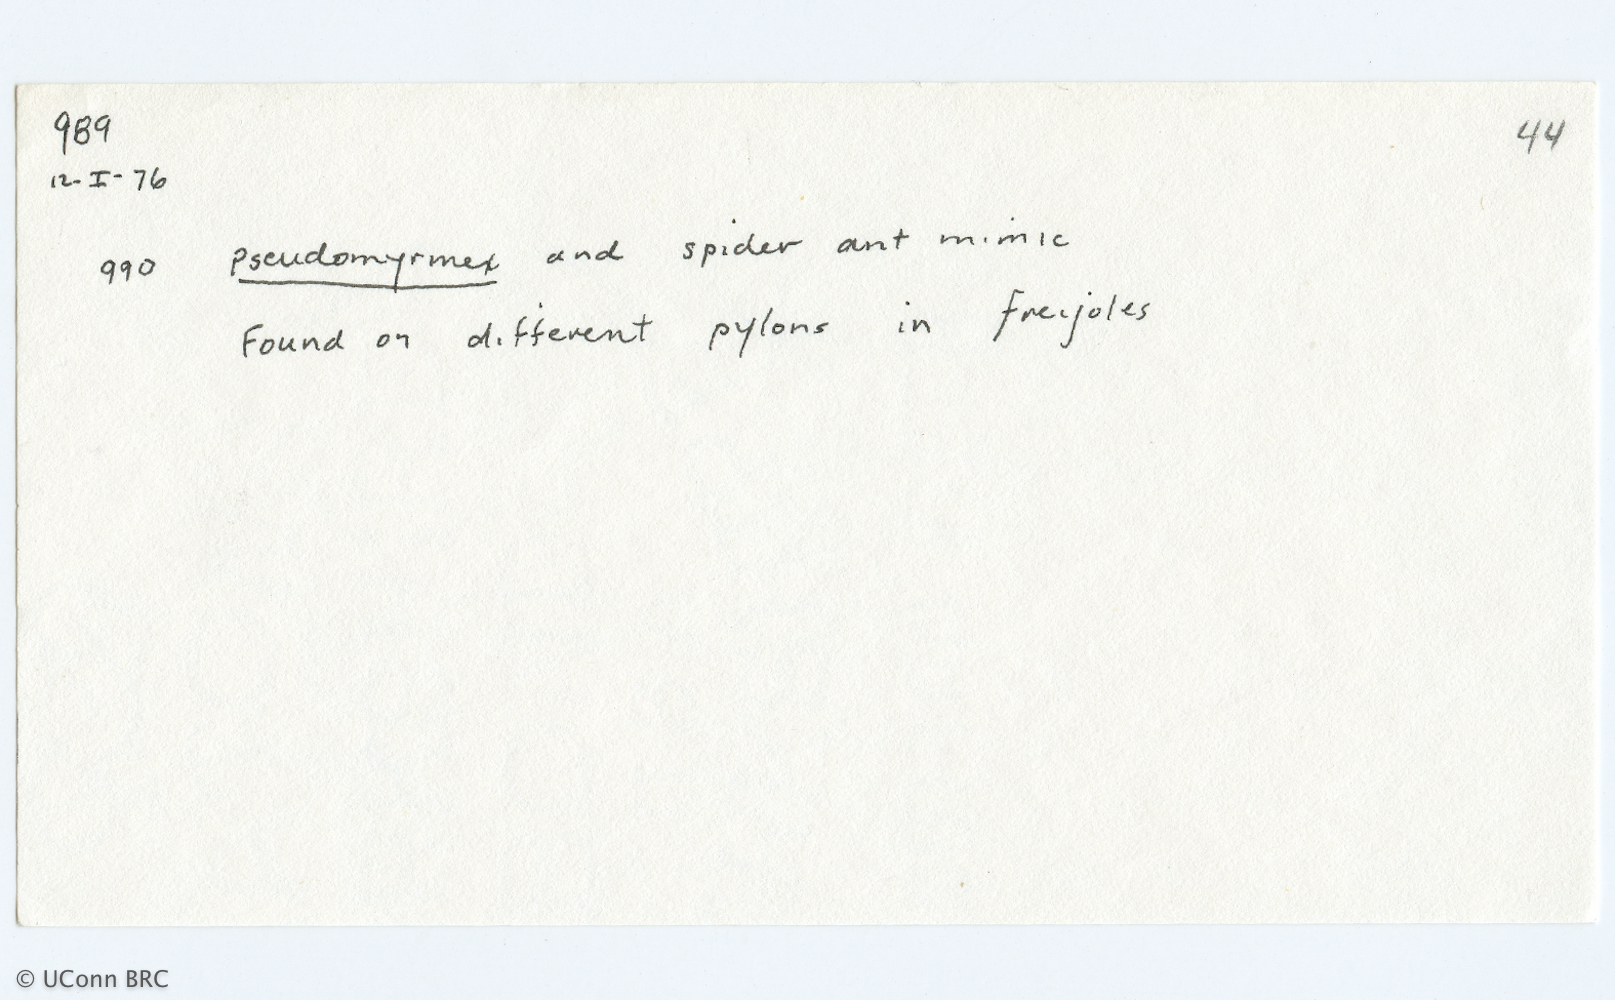 989
44
12-I-76
990 Pseudomyrmex and spider ant mimic
Found on different pylons in freijoles
© UConn BRC